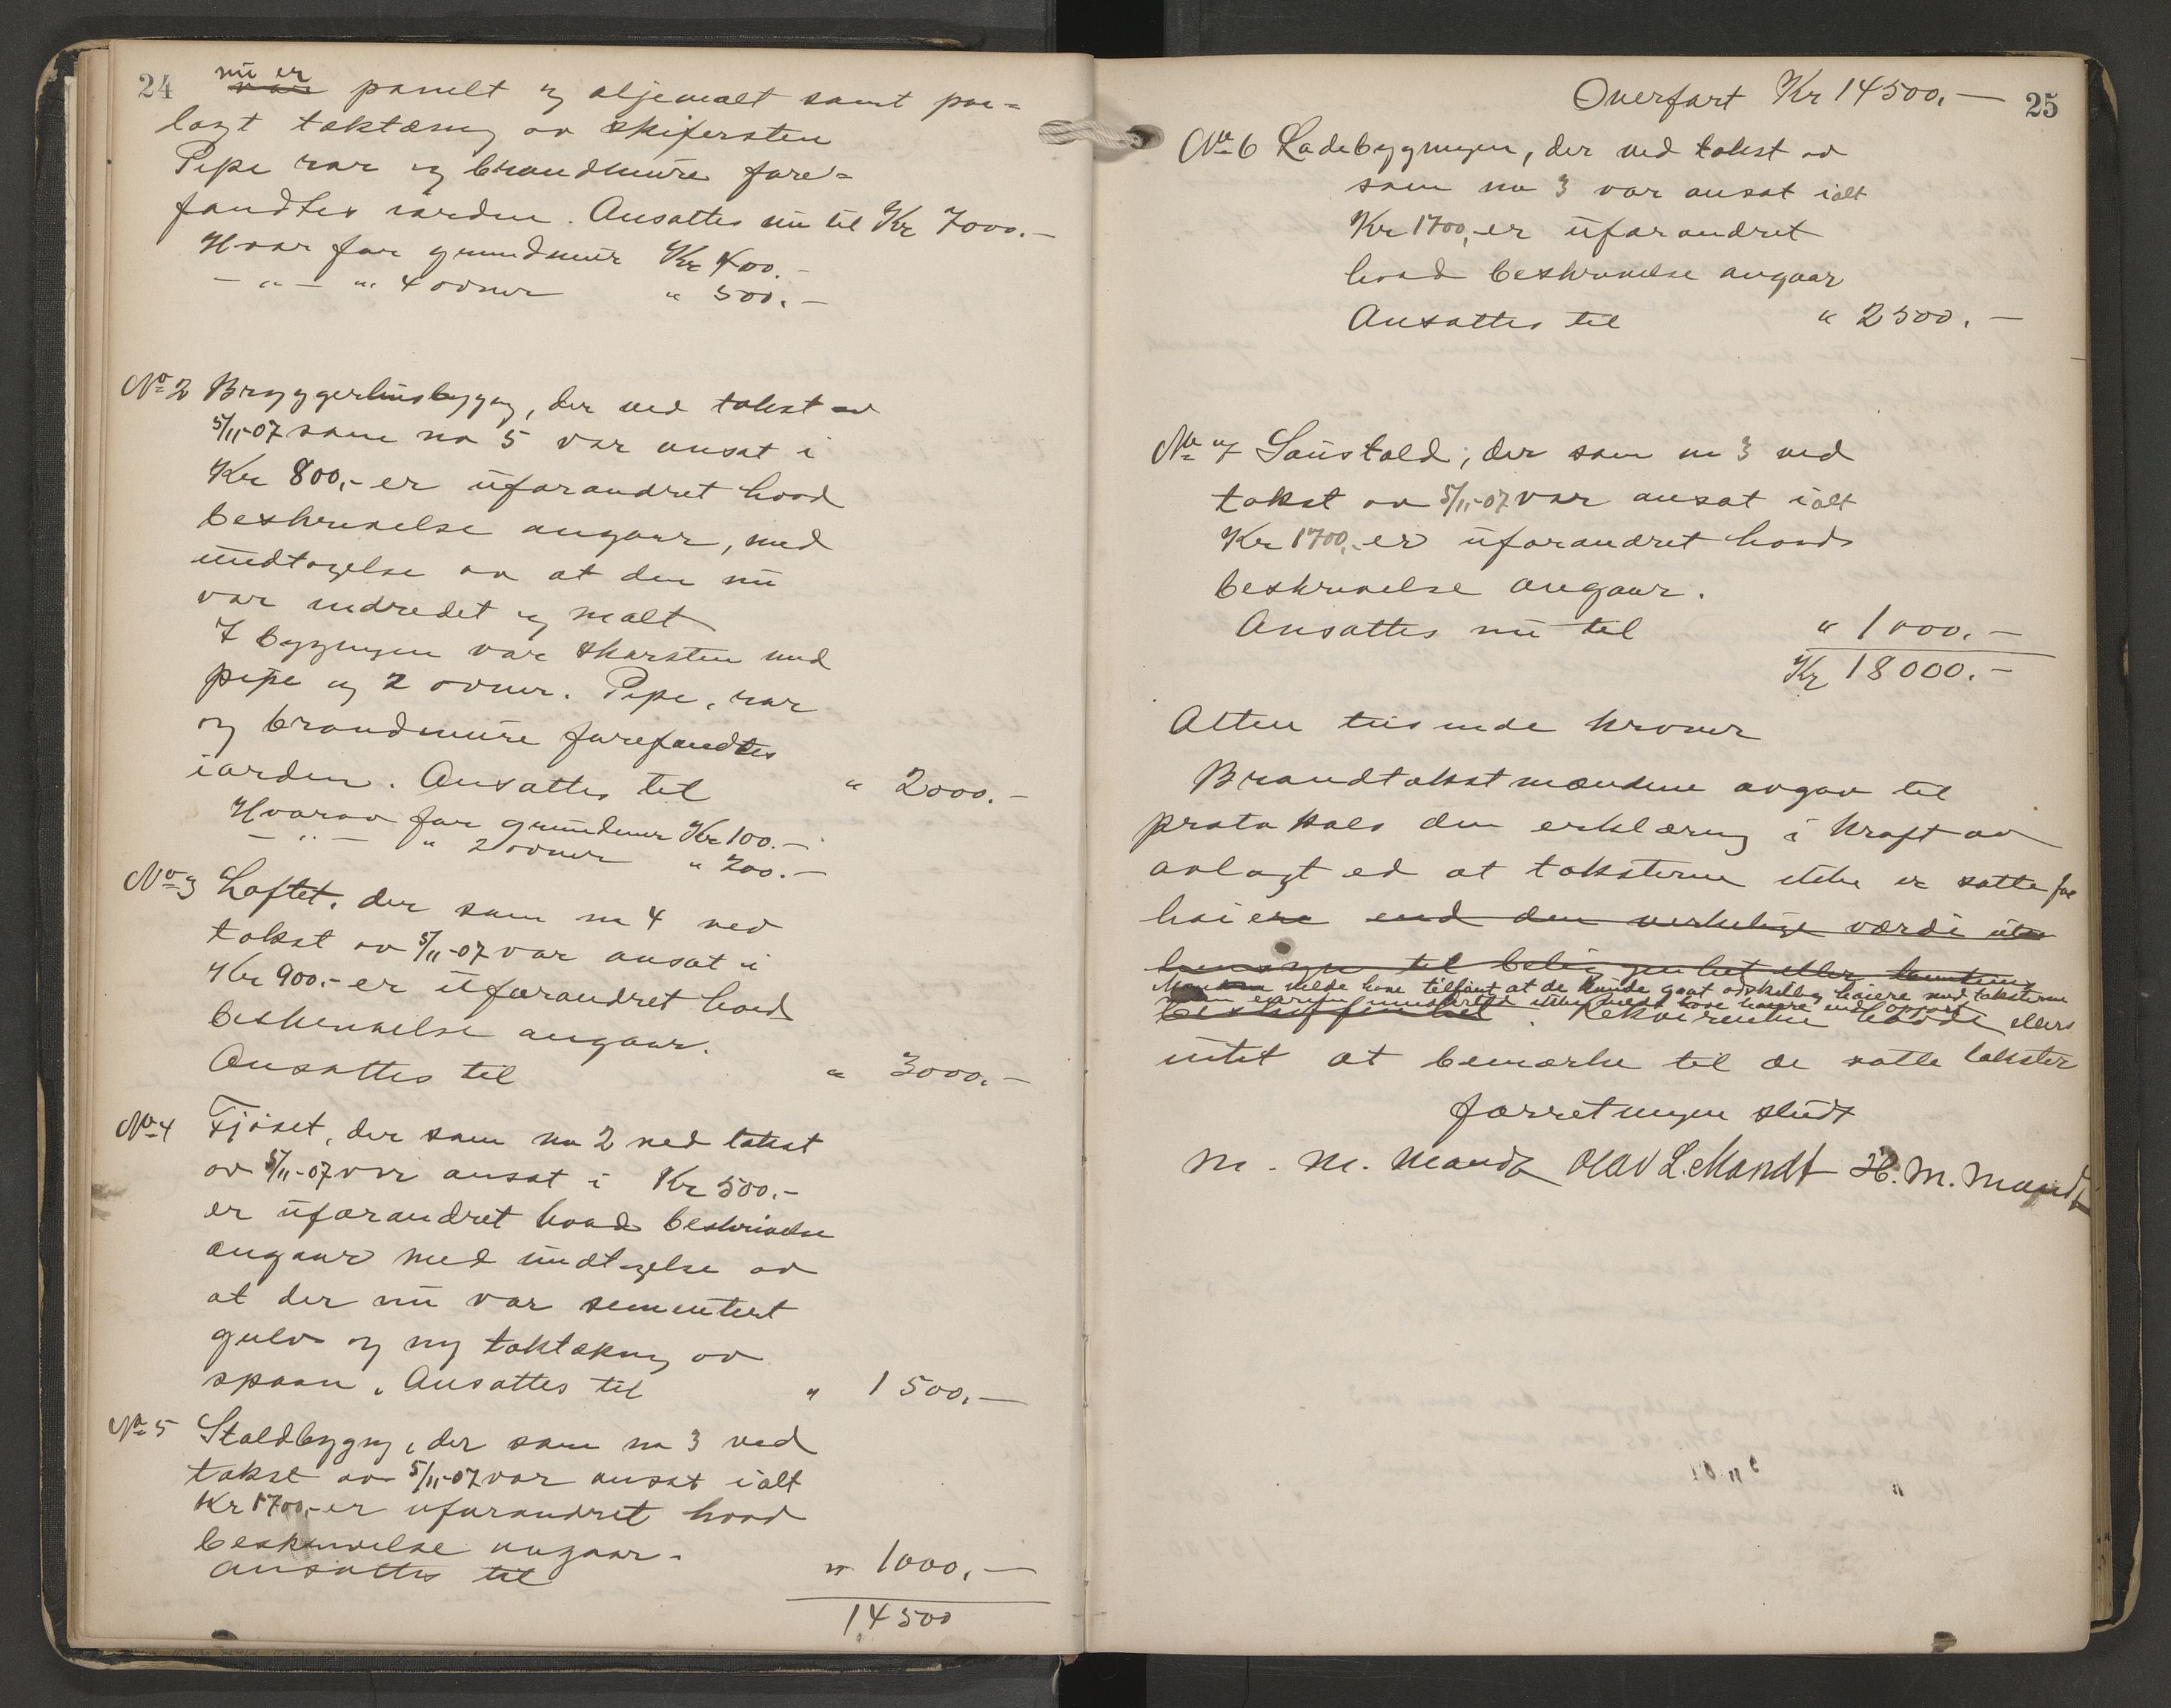 24
nu er
var panelt og oljemalt samt paa=
lagt taktækning av skifersten
Pipe rør og brandmure fore=
fandtes iorden. Ansattes nu til Kr 7000.-
Hvor for grundmur Kr 400.-
- " - " 4 ovner " 500.-
No 2 Bryggerhusbygng, der ved takst av
5/11-07 som no 5 var ansat i
Kr 800,- er uforandret hvad
beskrivelse angaar, med
undtagelse av at den nu
var indredet og malt
I bygningen var skorsten med
pipe og 2 ovner. Pipe, rør
og brandmure forefandtes
iorden. Ansattes til " 2000.-
Hvorav for grundmur Kr 100.-
- " - " 2 ovner " 200.-
No 3 Loftet, der som no 4 ved
takst av 5/11-07 var ansat i
Kr 900.- er uforandret hvad
beskrivelse angaar.
Ansattes til " 3000.-
No 4 Fjöset, der som no 2 ved takst
av 5/11-07 var ansat i Kr 500.-
er uforandret hvad beskrivelse
angaar med undtagelse av
at der nu var sementert
gulv og ny taktækning av
spaan. Ansattes til " 1500.-
No 5 Staldbygng, der som no 3 ved
takst av 5/11-07 var ansat ialt
Kr 1700,- er uforandret hvad
beskrivelse angaar.
ansattes til " 1000,-
14500
Overført Kr 14500.- 25
No 6 Ladebygningen, der ved takst av
som no 3 var ansat ialt
Kr 1700,- er uforandret
hvad beskrivelse angaar
Ansattes til " 2500.-
No 7 Saustald, der som no 3 ved
takst av 5/11-07 var ansat ialt
Kr 1700,- er uforandret hvad
beskrivelse angaar.
Ansattes nu til " 1000.-
Kr 18000.-
Atten tusinde kroner
Brandtakstmændene avgav til
protokols den erklæring i kraft av
avlagt ed at taksterne ikke er satte for
høiere end den verkelige værdi uten
hensyn til beliggenhet eller tomtens
Mændene vilde have tilføiet at de kunde gaat adskillig høiere med taksterne
beskaffenhet. Rekvirenten havde ellers
intet at bemærke til de satte takster
Forretningen slut
M. M. Mandt Olav L. Mandt H. M. Mandt